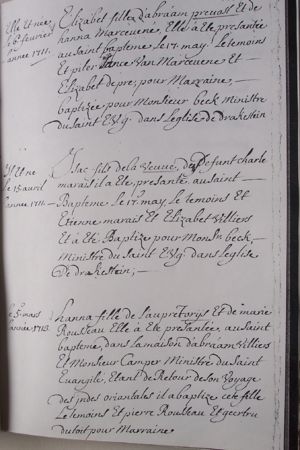 Elle et née
le 6e fevrier
année 1711.
Elizabet fille dabräam prevast et de
hanna Marcevene, Elle a Ete presantée
au Saint bapteme le 17. may. Le temoins
Et piter Vance Van Marcevene Et
Elizabet de pre; pour Marraine,
baptizée pour Monsieur beck Ministre
du saint Evg. dans leglise de drakestein
Il Et né
le 15 avril
l'année 1711
Isac fils de la veuve, du Defunt charle
marais il a Ete, presante, au saint
Bapteme. Le 17. may. le temoins Et
Etienne marais Et Elizabet Villiers
Et a éte Baptize pour Monsr. beck,
Ministre du Saint Evg. dans leglise
De drakestein;
le 5 mars
l'année 1713.
hanna fille de Torys Et de marie
Rousseau Elle a Ete presentée, au saint
bapteme, dans La maison dabraam Villiers
Et Monsieur Camper Ministre du Saint
Euangile, Etant de Retour de son Voyage
des jndes orientales il a baptize cete fille
Le temoins Et pierre Rousseau Et geertru
du toit pour Marraine